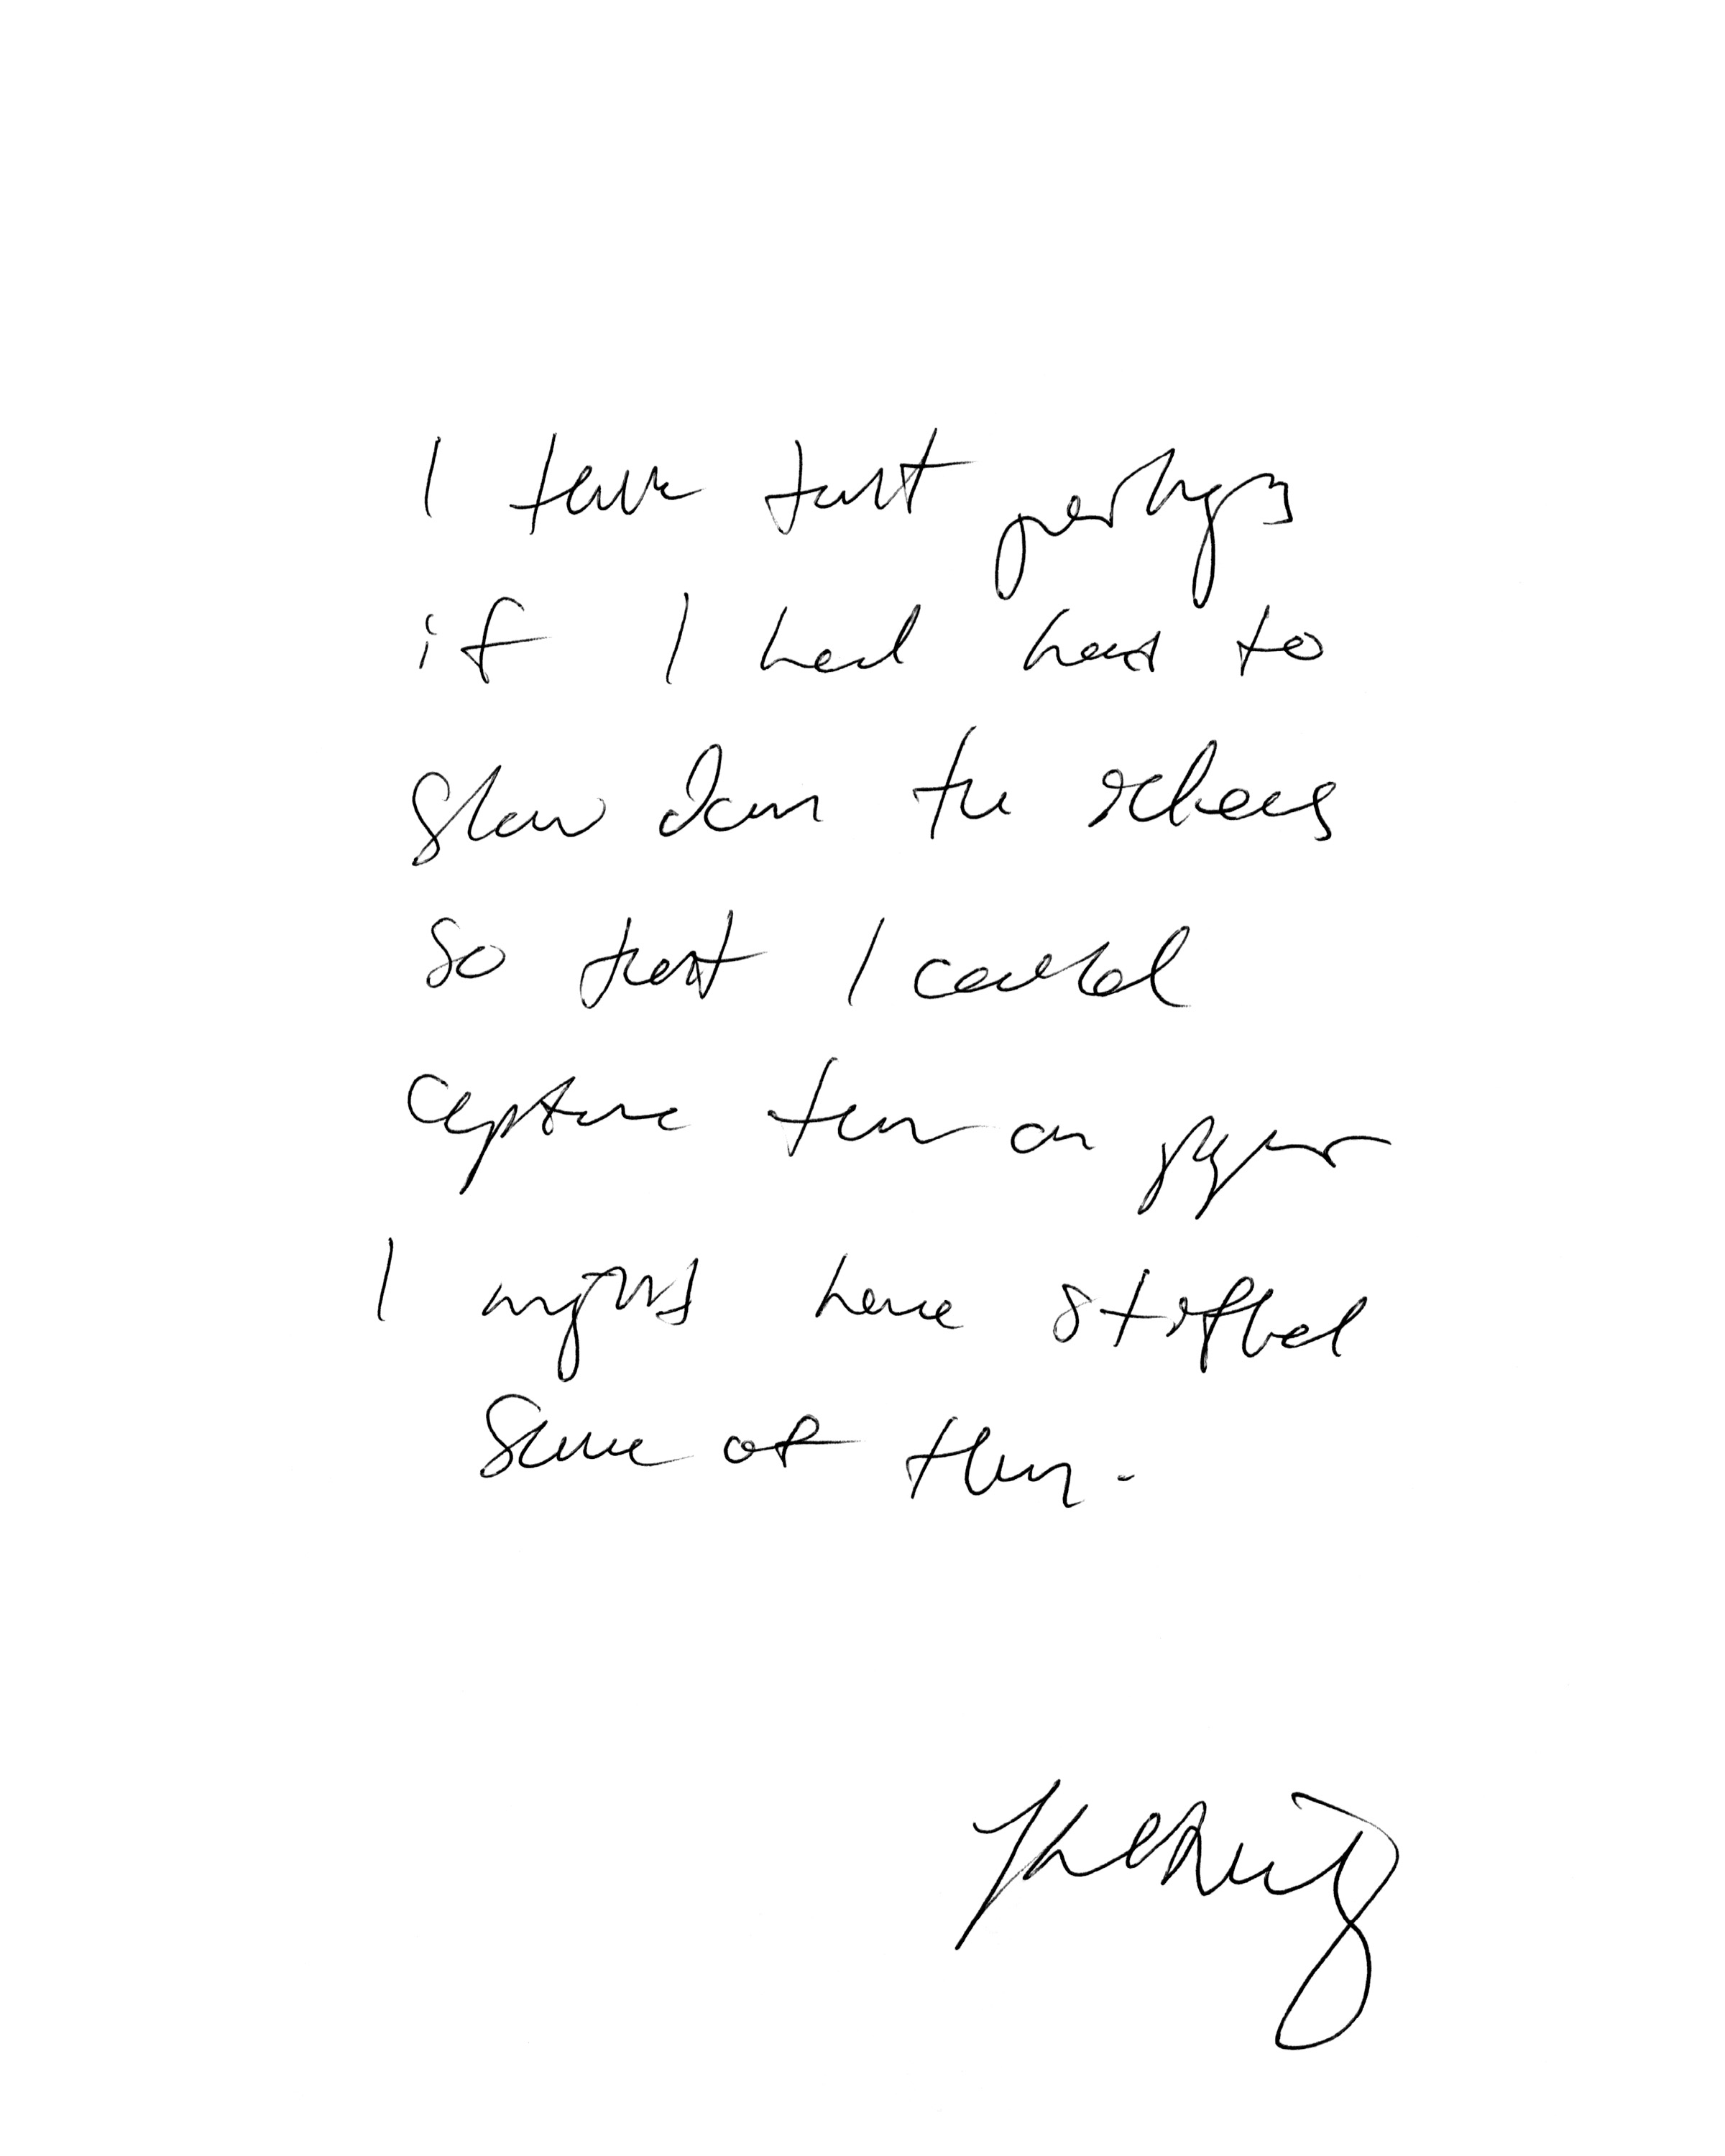 I feel that perhaps
if I had had to
slow down the ideas
so that I could
capture them on paper
I might have stifled
some of them.